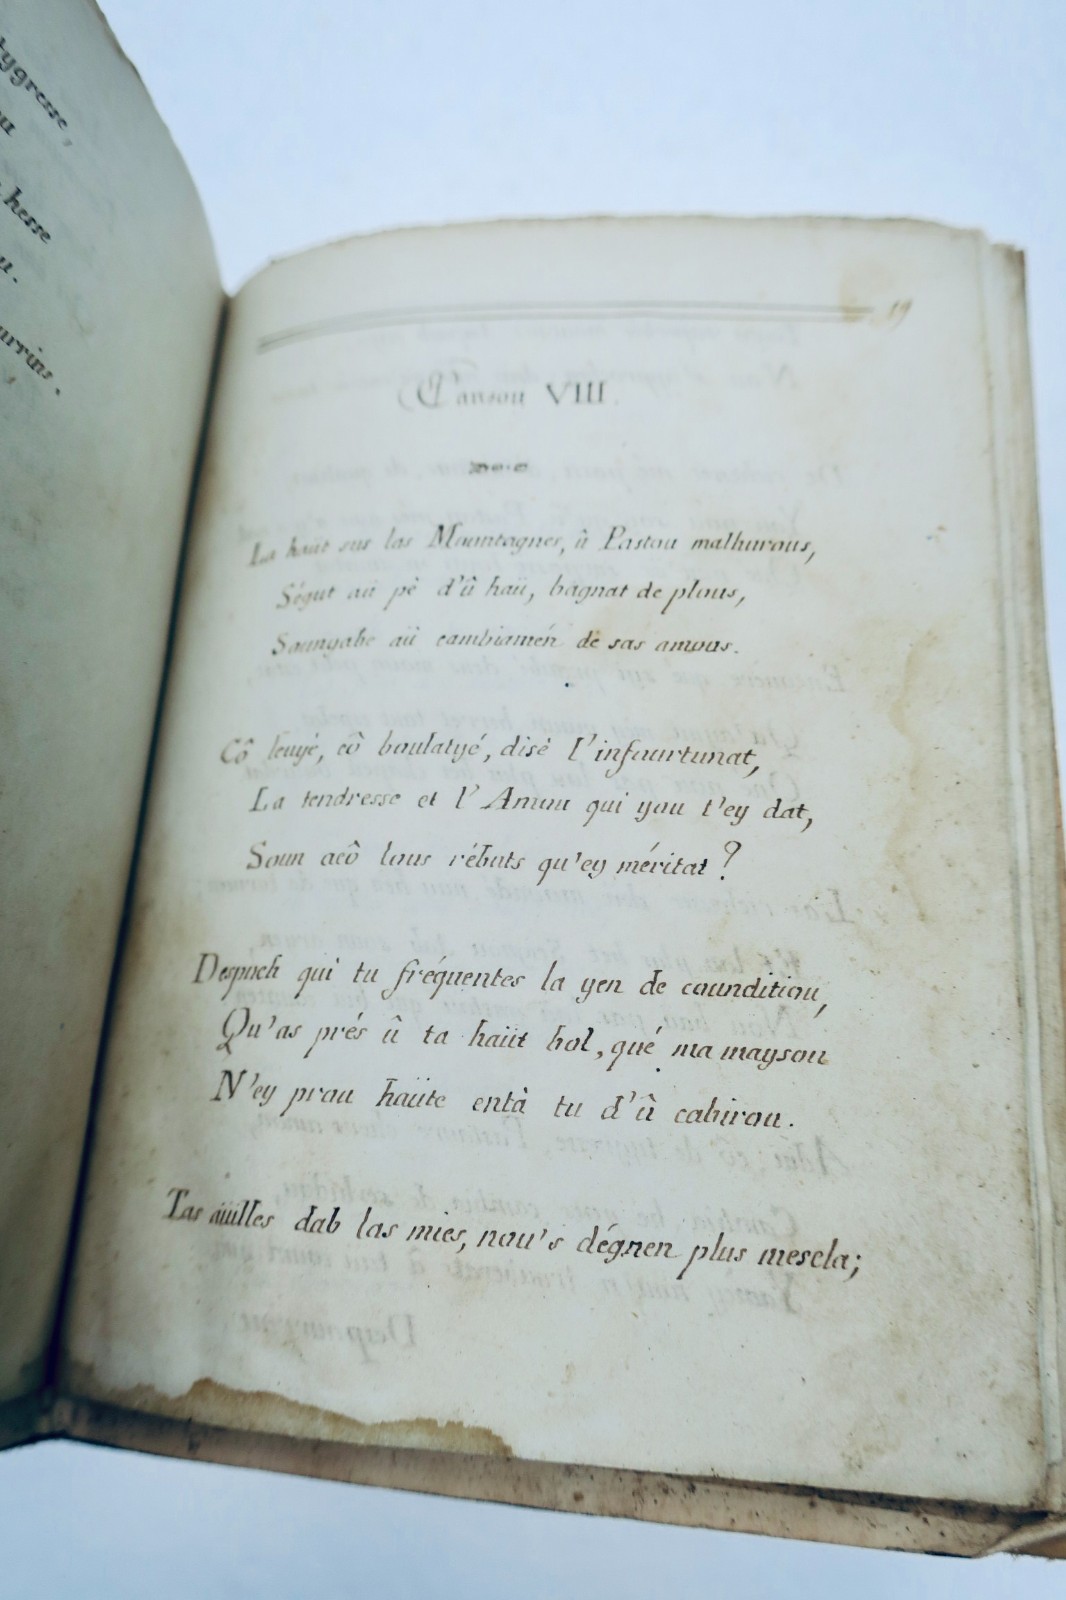 tygresse,
hesse
19
Cansou VIII.
La haüt sus las Mountagnes, û Pastou malhurous,
Ségut aü pè d'û haü, bagnat de plous,
Soungabe aü cambiamén de sas amous.
Cô leuyè, cô boulatyé, disè l'infourtunat,
La tendresse et l'Amou qui you t'ey dat,
Soun acô lous rébuts qu'ey méritat?
Despuch qui tu fréquentes la yen de counditiou,
Qu'as prés û ta haüt bol, qué ma maysou
N'ey prou haüte entà tu d'û cabirou.
Tas aüilles dab las mies, nou's dégnen plus mescla;